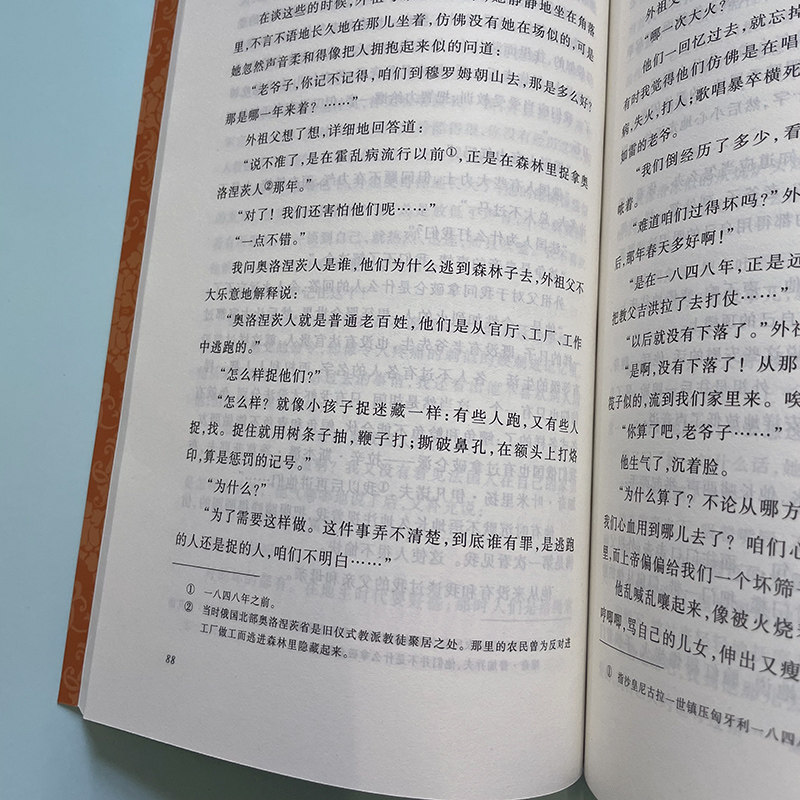 在谈这些的时候，外祖
静静地坐在角落
里，不言不语地长久地在那儿坐着，仿佛没有她在场似的，可是
她忽然声音柔和得像把人拥抱起来似的问道：
“老爷子，你记不记得，咱们到穆罗姆朝山去，那是多么好？
那是哪一年来着？……”
外祖父想了想，详细地回答道：
“说不准了，是在霍乱病流行以前①，正是在森林里捉拿奥
洛涅茨人②那年。”
“对了！我们还害怕他们呢……”
“一点不错。”
我问奥洛涅茨人是谁，他们为什么逃到森林子去，外祖父不
大乐意地解释说：
“奥洛涅茨人就是普通老百姓，他们是从官厅、工厂、工作
中逃跑的。”
“怎么样捉他们？”
“怎么样？就像小孩子捉迷藏一样：有些人跑，又有些人
捉，找。捉住就用树条子抽，鞭子打；撕破鼻孔，在额头上打烙
印，算是惩罚的记号。”
“为什么？”
“为了需要这样做。这件事弄不清楚，到底谁有罪，是逃跑
的人还是捉的人，咱们不明白……”
① 一八四八年之前。
② 当时俄国北部奥洛涅茨省是旧仪式教派教徒聚居之处。那里的农民曾为反对进
工厂做工而逃进森林里隐藏起来。
88
外祖父
“哪一次大火？”
他们一回忆过去，就忘掉
有时我觉得他们仿佛是在唱
病，失火，打人；歌唱暴卒横死
如雷的老爷。
“我们倒经历了多少，看
咳着。
“难道咱们过得坏吗？”外
后，那年春天多好啊！”
“是在一八四八年，正是远
把教父吉洪拉了去打仗……”
“以后就没有下落了。”外
“是啊，没有下落了！从那
筏子似的，流到我们家里来。唉
“你算了吧，老爷子……”
他生气了，沉着脸。
“为什么算了？不论从哪方
我们心血用到哪儿去了？咱们心
里，而上帝偏偏给我们一个坏筛
他乱喊乱嚷起来，像被火烧
哼唧唧，骂自己的儿女，伸出又瘦
① 指沙皇尼古拉一世镇压匈牙利一八四八